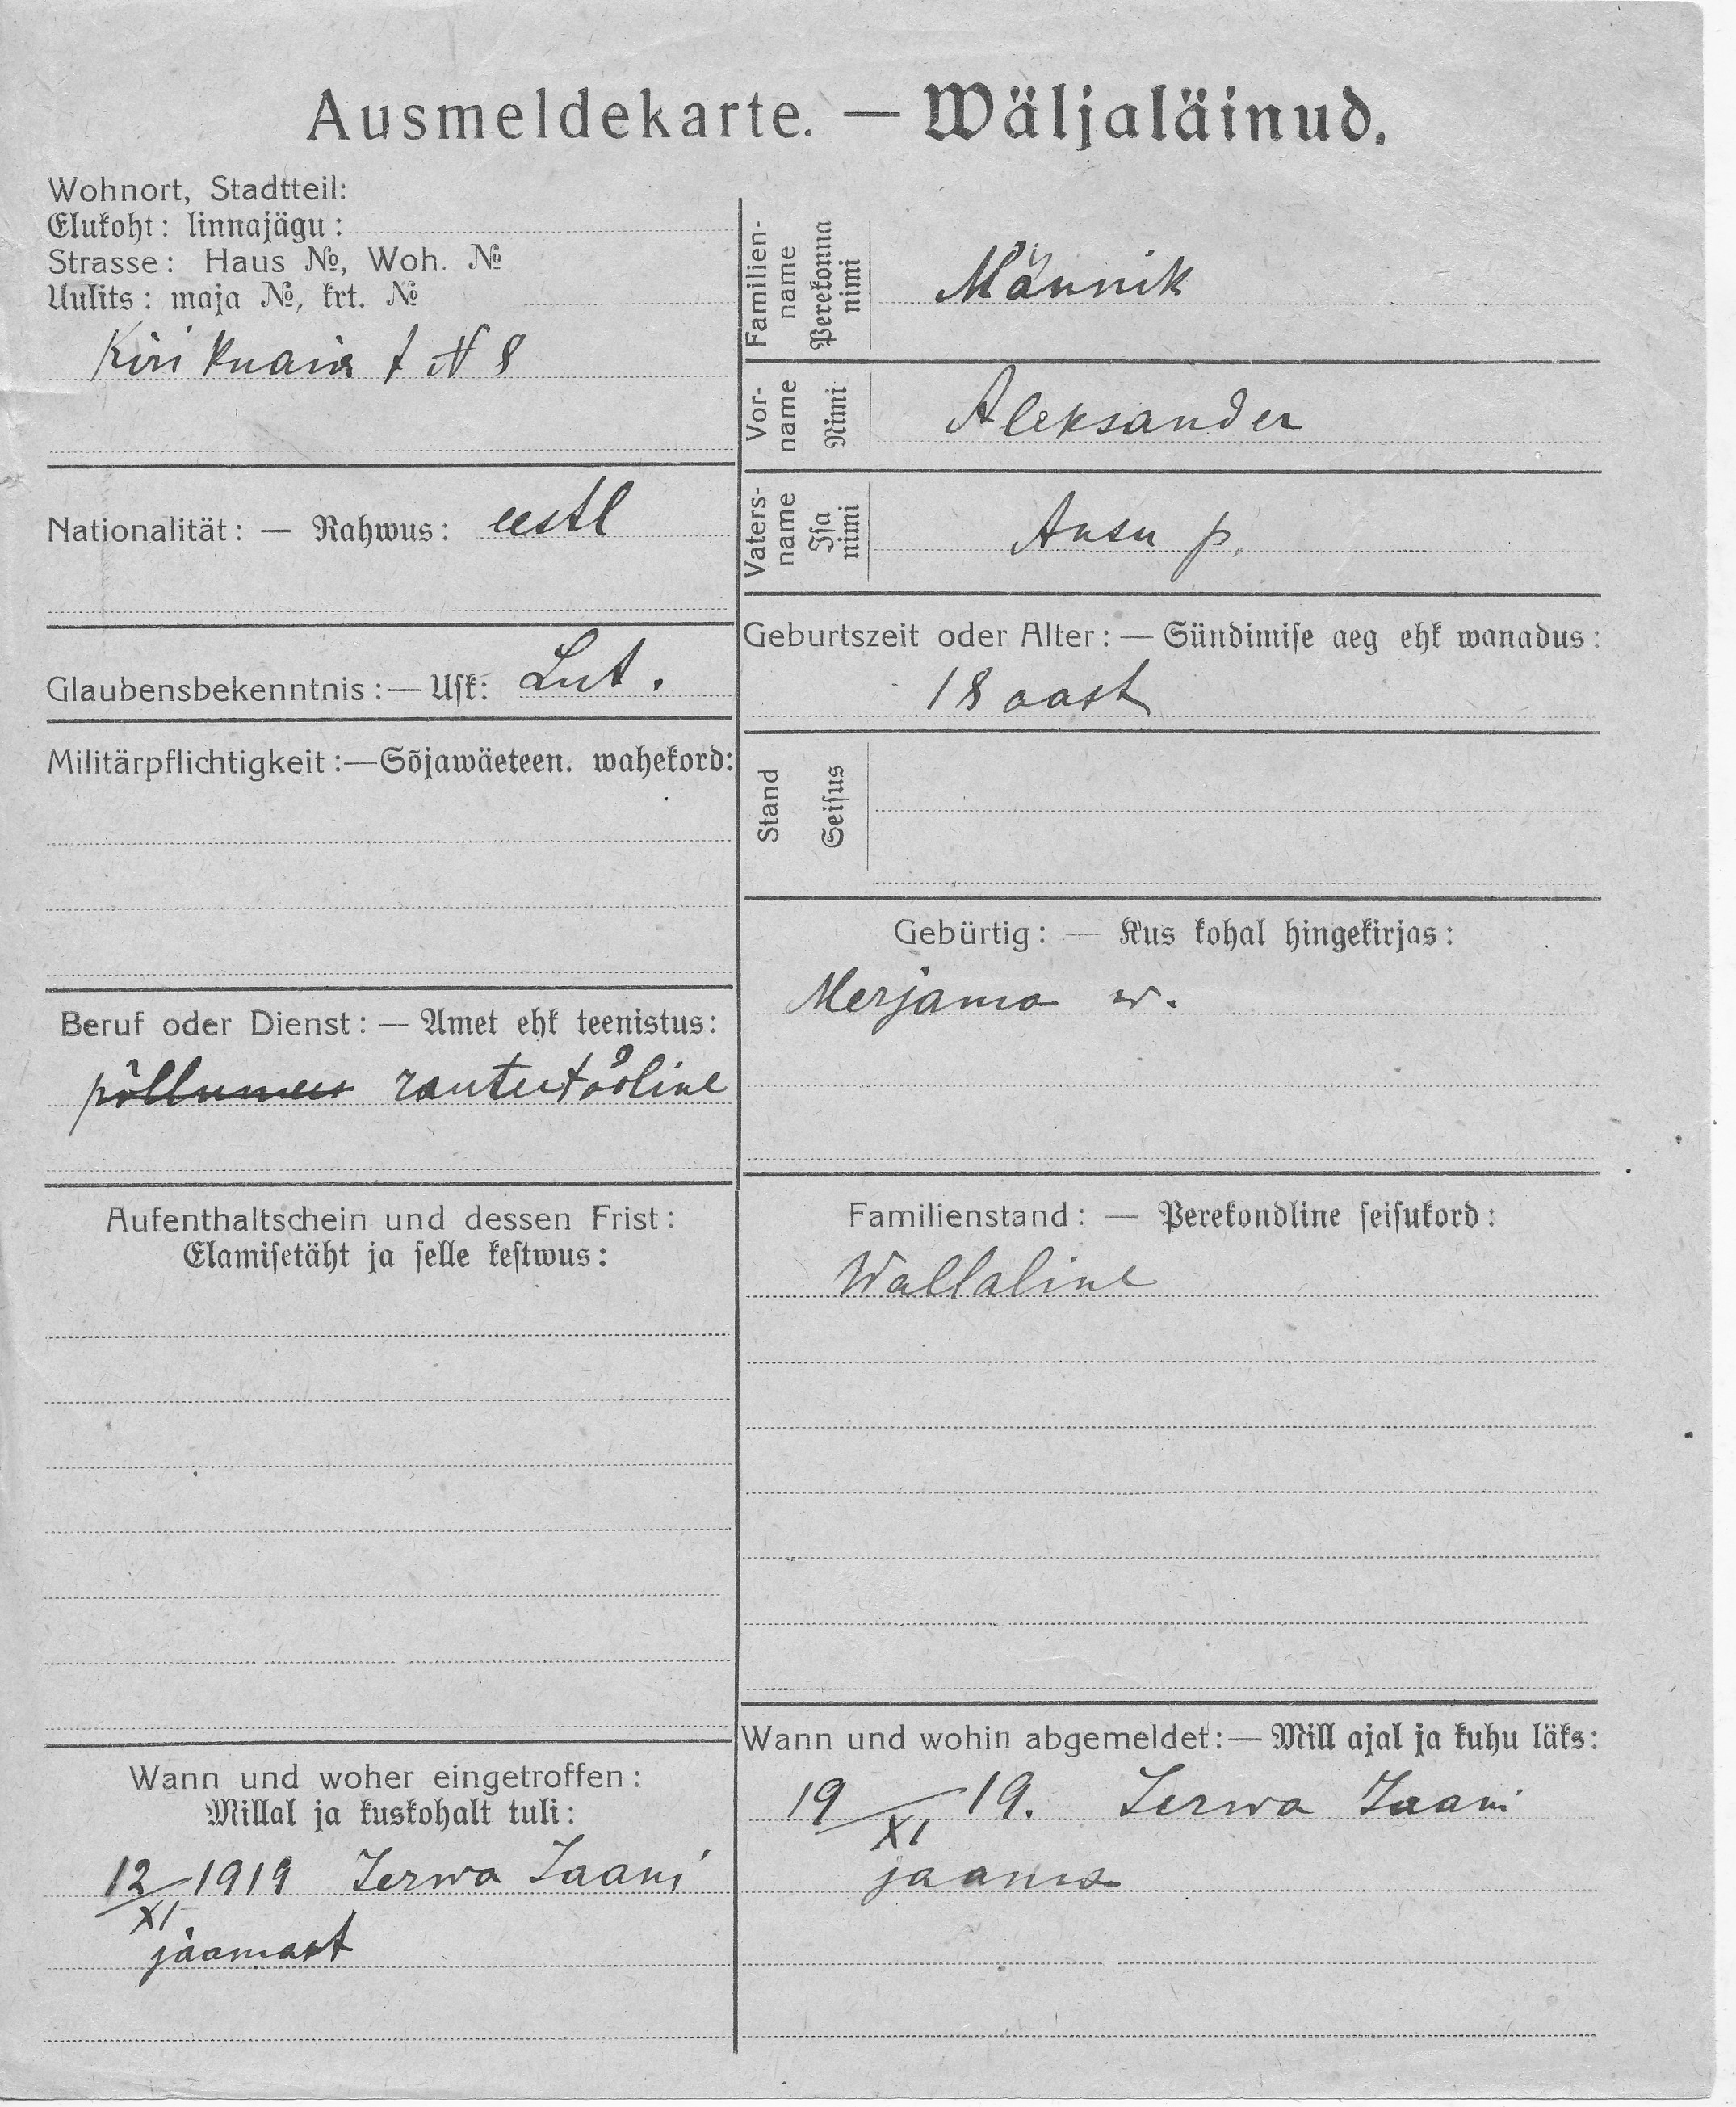 Ausmeldekarte. — Wäljaläinud.
Wohnort, Stadtteil:
Elukoht: linnajägu:
Strasse: Haus №, Woh. №
Uulits: maja №, krt. №
Kirikuaia t N 8
Nationalität: — Rahwus: eestl
Glaubensbekenntnis:— Usk: Lut.
Militärpflichtigkeit:—Sõjawäeteen. wahekord:
Beruf oder Dienst: — Amet ehk teenistus:
põllumees rauteetööline
Aufenthaltschein und dessen Frist:
Elamisetäht ja selle kestwus:
Wann und woher eingetroffen:
Millal ja kuskohalt tuli:
12/XI 1919 Jerwa Jaani
jaamast
Familien-
name
Perekonna
nimi
Männik
Vor-
name
Nimi
Aleksander
Vaters-
name
Isa
nimi
Ansu p.
Geburtszeit oder Alter: — Sündimise aeg ehk wanadus:
18 aast
Stand
Seisus
Gebürtig: — Kus kohal hingekirjas:
Merjama w.
Familienstand: — Perekondline seisukord:
Wallaline
Wann und wohin abgemeldet:— Mill ajal ja kuhu läks:
19/XI 19. Jerwa Jaani
jaama